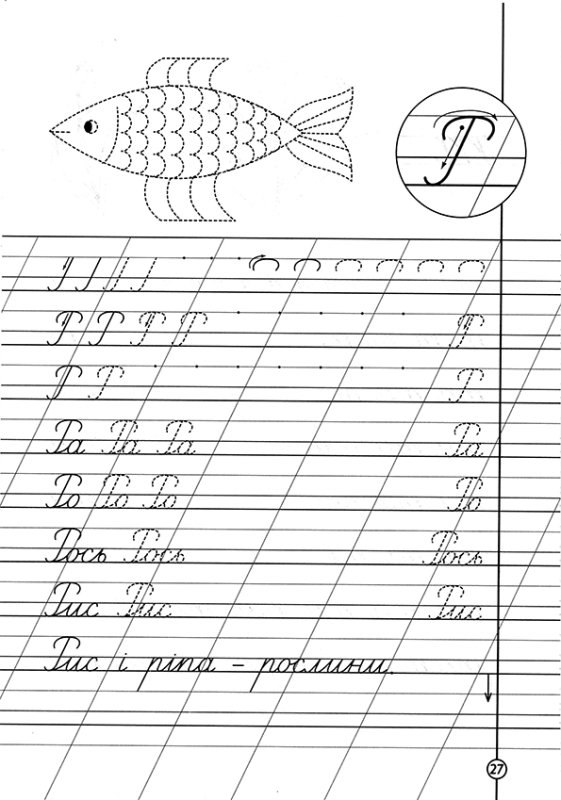 Р
Р Р Р Р Р
Р Р Р
Ра Ра Ра Ра
Ро Ро Ро Ро
Рось Рось Рось
Рис Рис Рис
Рис і ріпа – рослини.
27